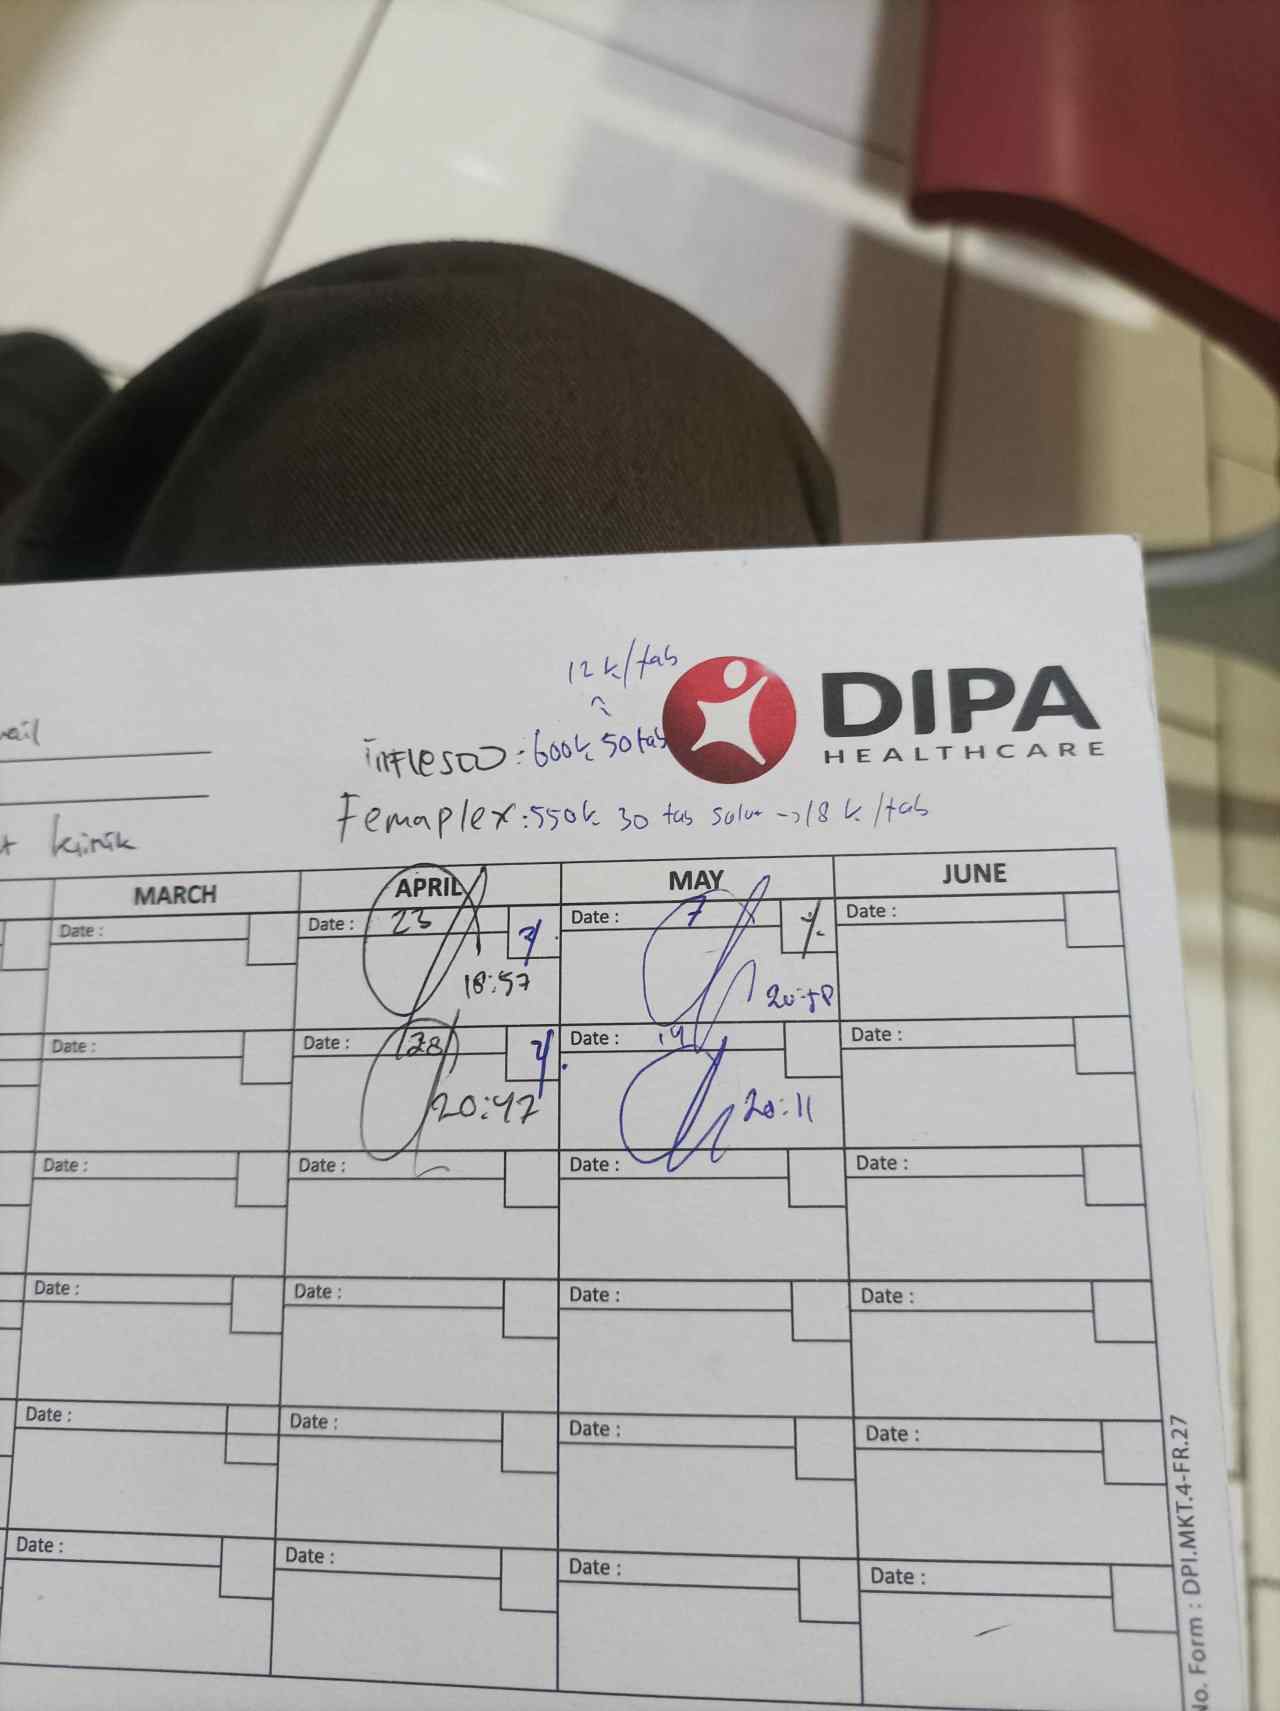 12 k/tab
DIPA
HEALTHCARE
inflesco : 600k 50 tab
Femaplex : 550k 30 tab salut -> 18 k/tab
klinik
MARCH APRIL MAY JUNE
Date : Date : 23 Date : 7 Date :
18:57
Date : Date : 28 Date : 14 Date :
20:47 20:11
Date : Date : Date : Date :
Date : Date : Date : Date :
Date : Date : Date : Date :
Date : Date : Date : Date :
No. Form : DPI.MKT.4-FR.27